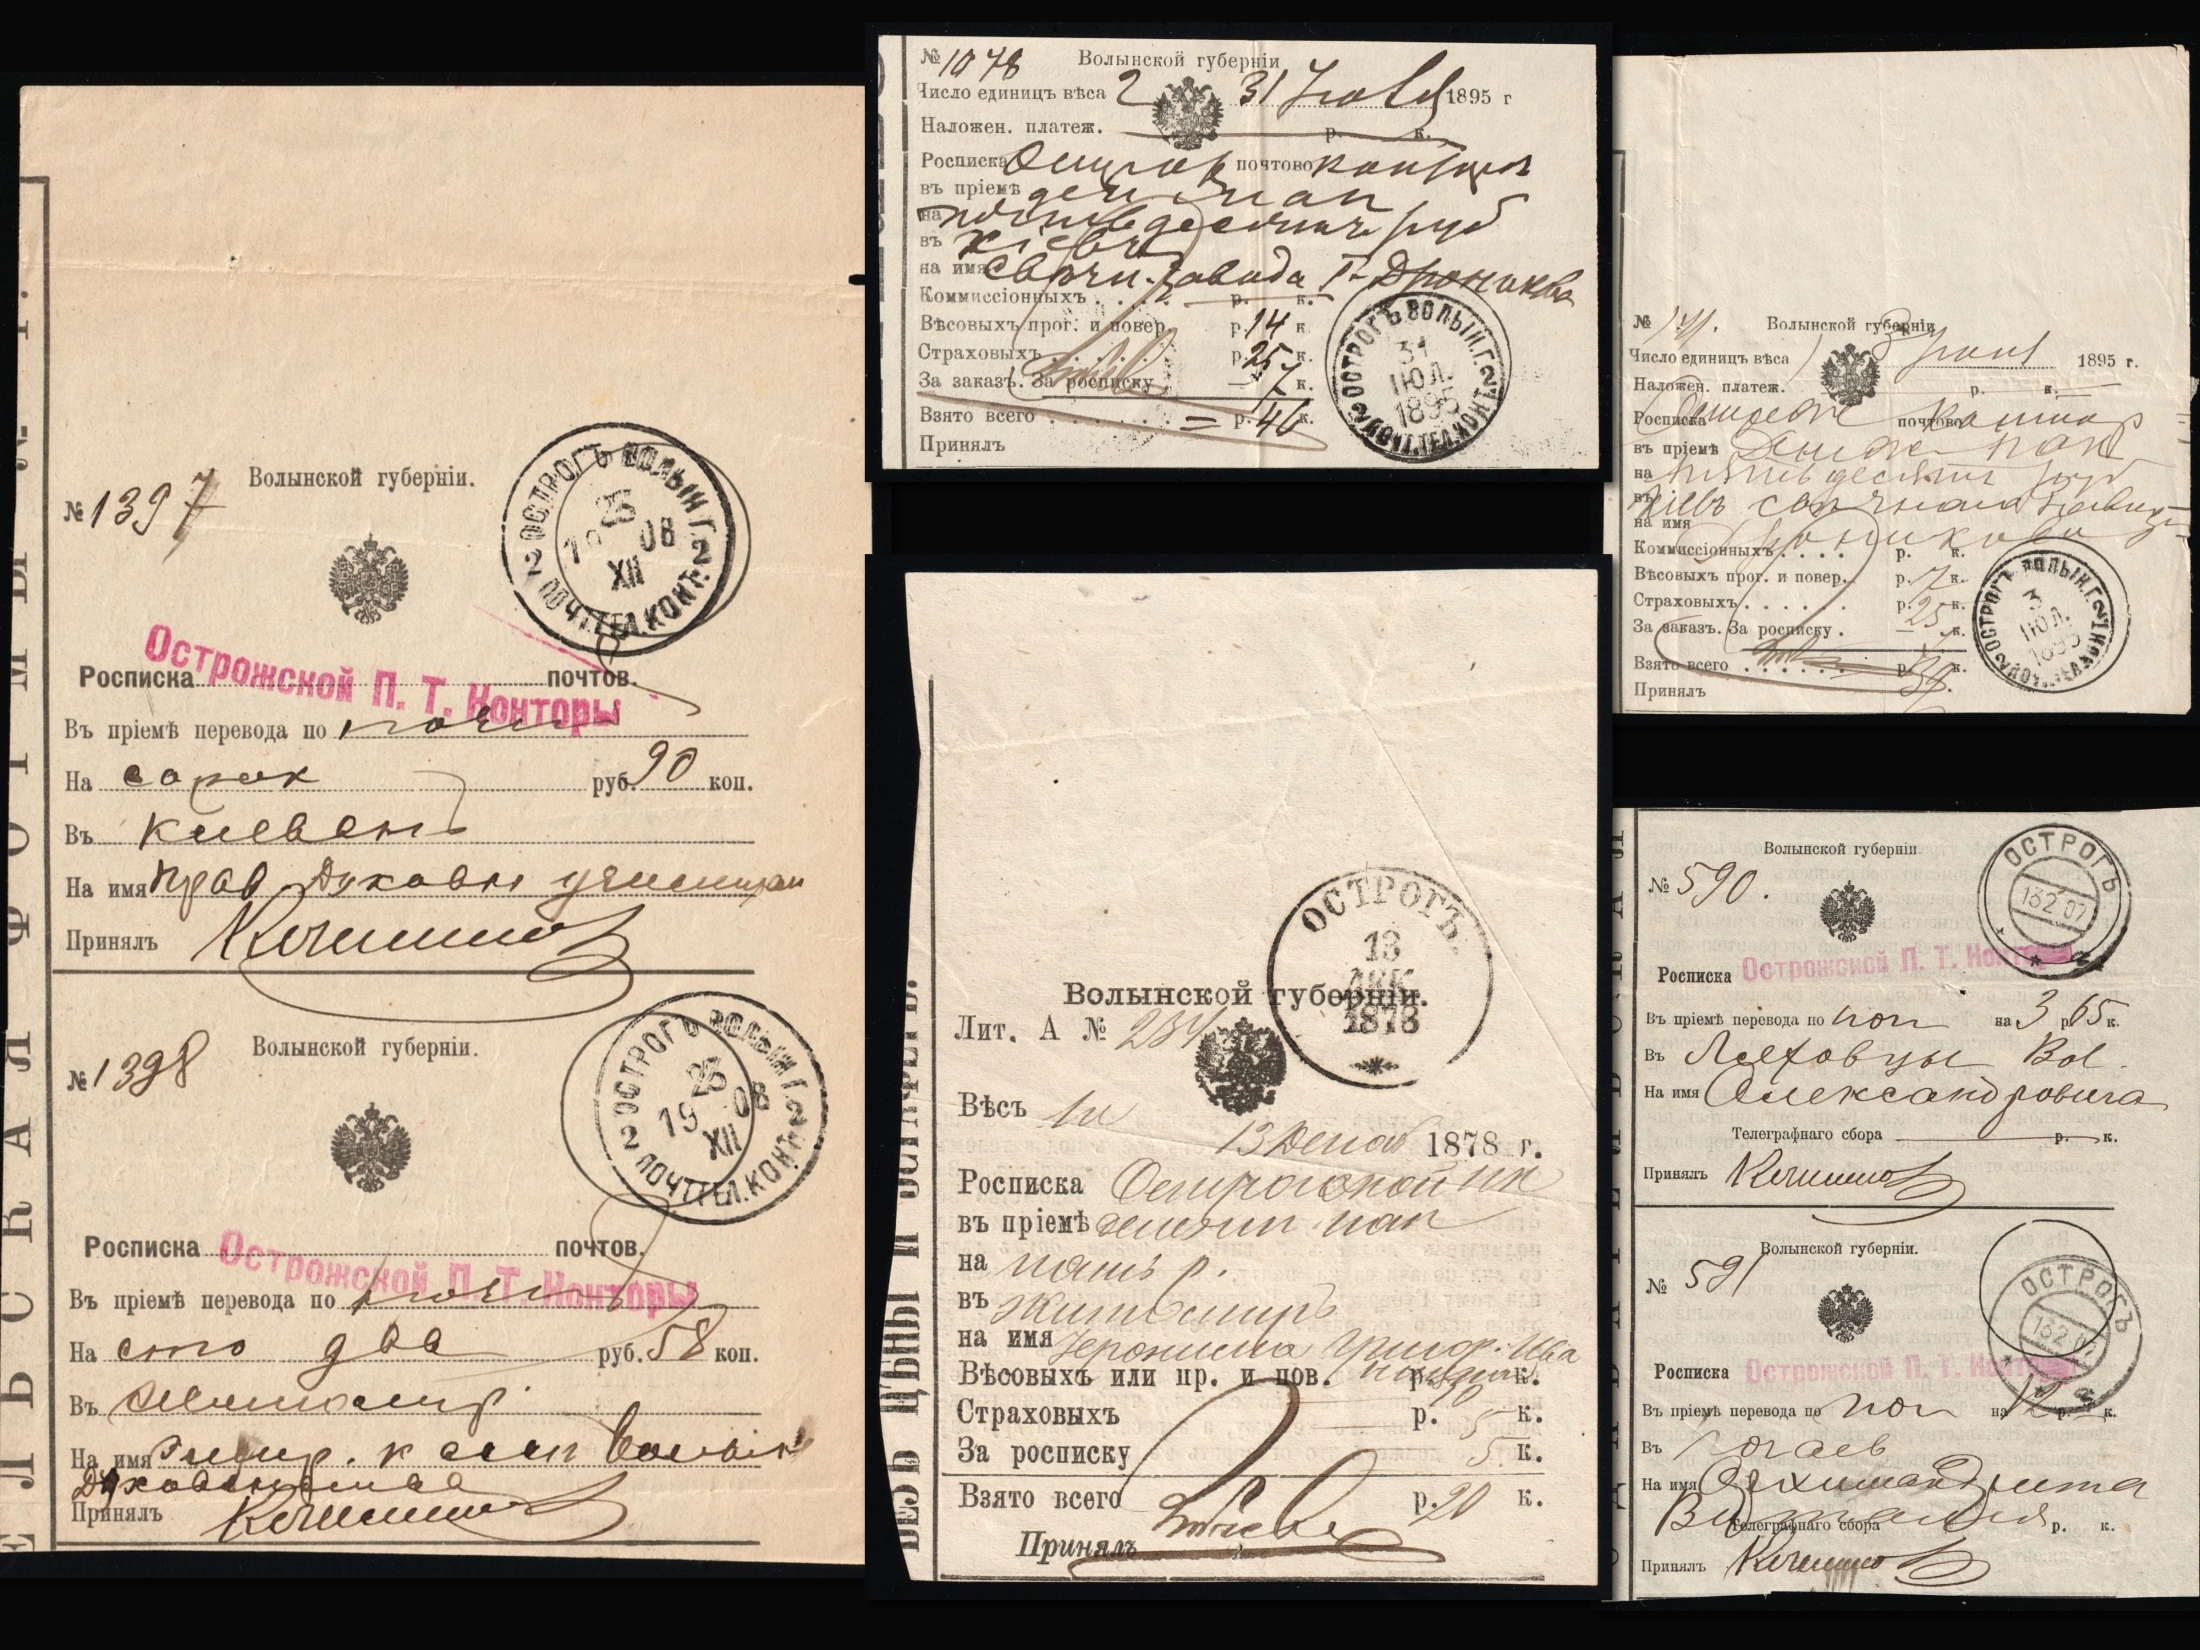 Волынской губерніи.
№ 1397
ОСТРОГЪ ВОЛЫН.Г.
23
19 08
XII
2 ПОЧТ.ТЕЛ.КОНТ. 2
Острожской П. Т. Конторы
Росписка почтов.
Въ пріемѣ перевода по почт
На сорок руб. 90 коп.
Въ Киевань
На имя Прав Духовн училища
Принялъ
Волынской губерніи.
№ 1398
ОСТРОГЪ ВОЛЫН Г.
19 08
XII
2 ПОЧТ.ТЕЛ.КОНТ. 2
Острожской П. Т. Конторы
Росписка почтов.
Въ пріемѣ перевода по почт
На сто два руб. 58 коп.
Въ Житомир
На имя к
Духовенства
Принялъ
№ 1078 Волынской губерніи
Число единицъ вѣса 2 31 Іюля 1895 г
Наложен. платеж. р. к.
Росписка Острог почтово контор
въ пріемѣ ден пак
на пятьдесят руб
въ Кіевъ
на имя Свѣчн. завода
Коммиссіонныхъ р. к.
Вѣсовыхъ прог. и повер. р. 14 к
Страховыхъ р. 25 к.
За заказъ. За росписку 7 к.
Взято всего = р. 46 к.
Принялъ
ОСТРОГЪ ВОЛЫН.Г.
31
ІЮЛ.
1895
2 ПОЧТ.ТЕЛ.КОНТ. 2
Волынской губерніи.
ОСТРОГЪ.
13
ДЕК.
1878
Лит. А № 284
Вѣсъ 1 л
13 Декаб 1878 г.
Росписка Острогской пк
въ пріемѣ денежн пак
на пять р.
въ Житомиръ
на имя Іеронима Григор.
Вѣсовыхъ или пр. и пов. р. 10 к.
Страховыхъ р. 5 к.
За росписку 5 к.
Взято всего р. 20 к.
Принялъ
№ 171. Волынской губерніи
Число единицъ вѣса 1 3 Іюля 1895 г.
Наложен. платеж. р. к.
Росписка почтово контор
въ пріемѣ Денеж пак
на пятьдесят руб
въ Кіевъ свѣчнаго завода
на имя
Коммиссіонныхъ р. к.
Вѣсовыхъ прог. и повер. р. 7 к.
Страховыхъ р. 25 к.
За заказъ. За росписку к.
Взято всего р. к.
Принялъ
ОСТРОГЪ ВОЛЫН.Г.
3
ІЮЛ.
1895
Волынской губерніи.
№ 590.
ОСТРОГЪ
13 2 07
Росписка Острожской П. Т. Конторы
Въ пріемѣ перевода по поч на 3 р. 65 к.
Въ Ляховцы Вол.
На имя Александровича
Телеграфнаго сбора р. к.
Принялъ
Волынской губерніи.
№ 591
ОСТРОГЪ
13 2 07
Росписка Острожской П. Т. Конторы
Въ пріемѣ перевода по поч на 12 р. к.
Въ Почаев
На имя Архимандрита
Виталія
Телеграфнаго сбора р. к.
Принялъ